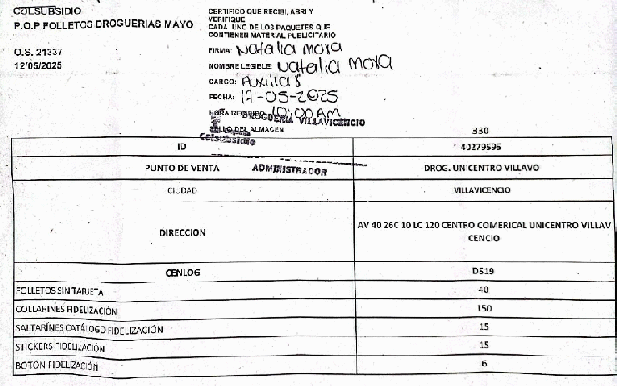 COLSUBSIDIO
P.O.P FOLLETOS DROGUERIAS MAYO
O.S. 21337
12/05/2025
CERTIFICO QUE RECIBI, ABRI Y
VERIFIQUE
CADA UNO DE LOS PAQUETES QUE
CONTIENEN MATERIAL PUBLICITARIO
FIRMA: Natalia Mora
NOMBRE LEGIBLE: Natalia Mora
CARGO: Auxiliar
FECHA: 12-05-2025
HORA RECIBIDO: 10:00 AM
DROGUERIA VILLAVICENCIO
SELLO DEL ALMACEN
Colsubsidio
330
ID 40279595
PUNTO DE VENTA DROG. UNICENTRO VILLAVO
ADMINISTRADOR
CIUDAD VILLAVICENCIO
DIRECCION AV 40 26C 10 LC 120 CENTRO COMERICAL UNICENTRO VILLAV
CENCIO
CENLOG D519
FOLLETOS SIN TARJETA 40
COLLARINES FIDELIZACIÓN 150
SALTARINES CATÁLOGO FIDELIZACIÓN 15
STICKERS FIDELIZACIÓN 15
BOTON FIDELIZACIÓN 6